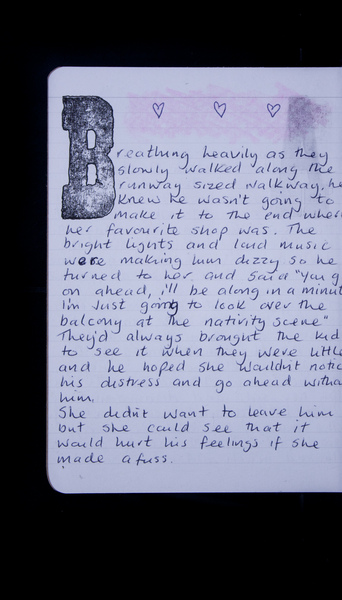 Breathing heavily as they
slowly walked along the
runway sized walkway, he
knew he wasn't going to
make it to the end wher
her favourite shop was. The
bright lights and loud music
were making him dizzy so he
turned to her and said "You g
on ahead, i'll be along in a minut
I'm just going to look over the
balcony at the nativity scene"
They'd always brought the kid
to see it when they were little
and he hoped she wouldn't notic
his distress and go ahead witho
him.
She didn't want to leave him
but she could see that it
would hurt his feelings if she
made a fuss.